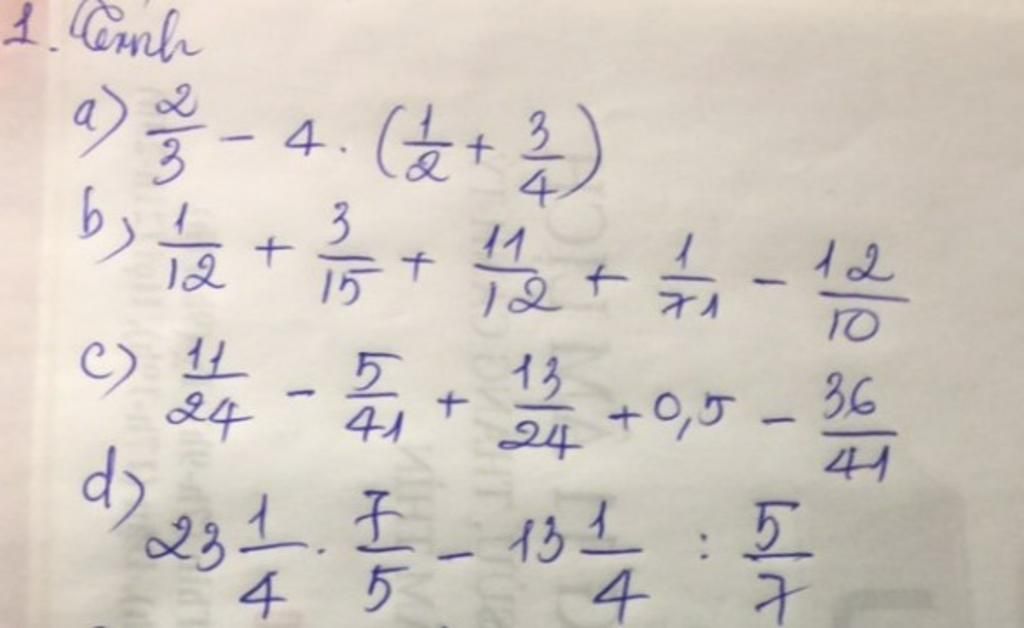 1. Tính
a) 2/3 - 4 . (1/2 + 3/4)
b) 1/12 + 3/15 + 11/12 + 1/71 - 12/10
c) 11/24 - 5/41 + 13/24 + 0,5 - 36/41
d) 23 1/4 . 7/5 - 13 1/4 : 5/7